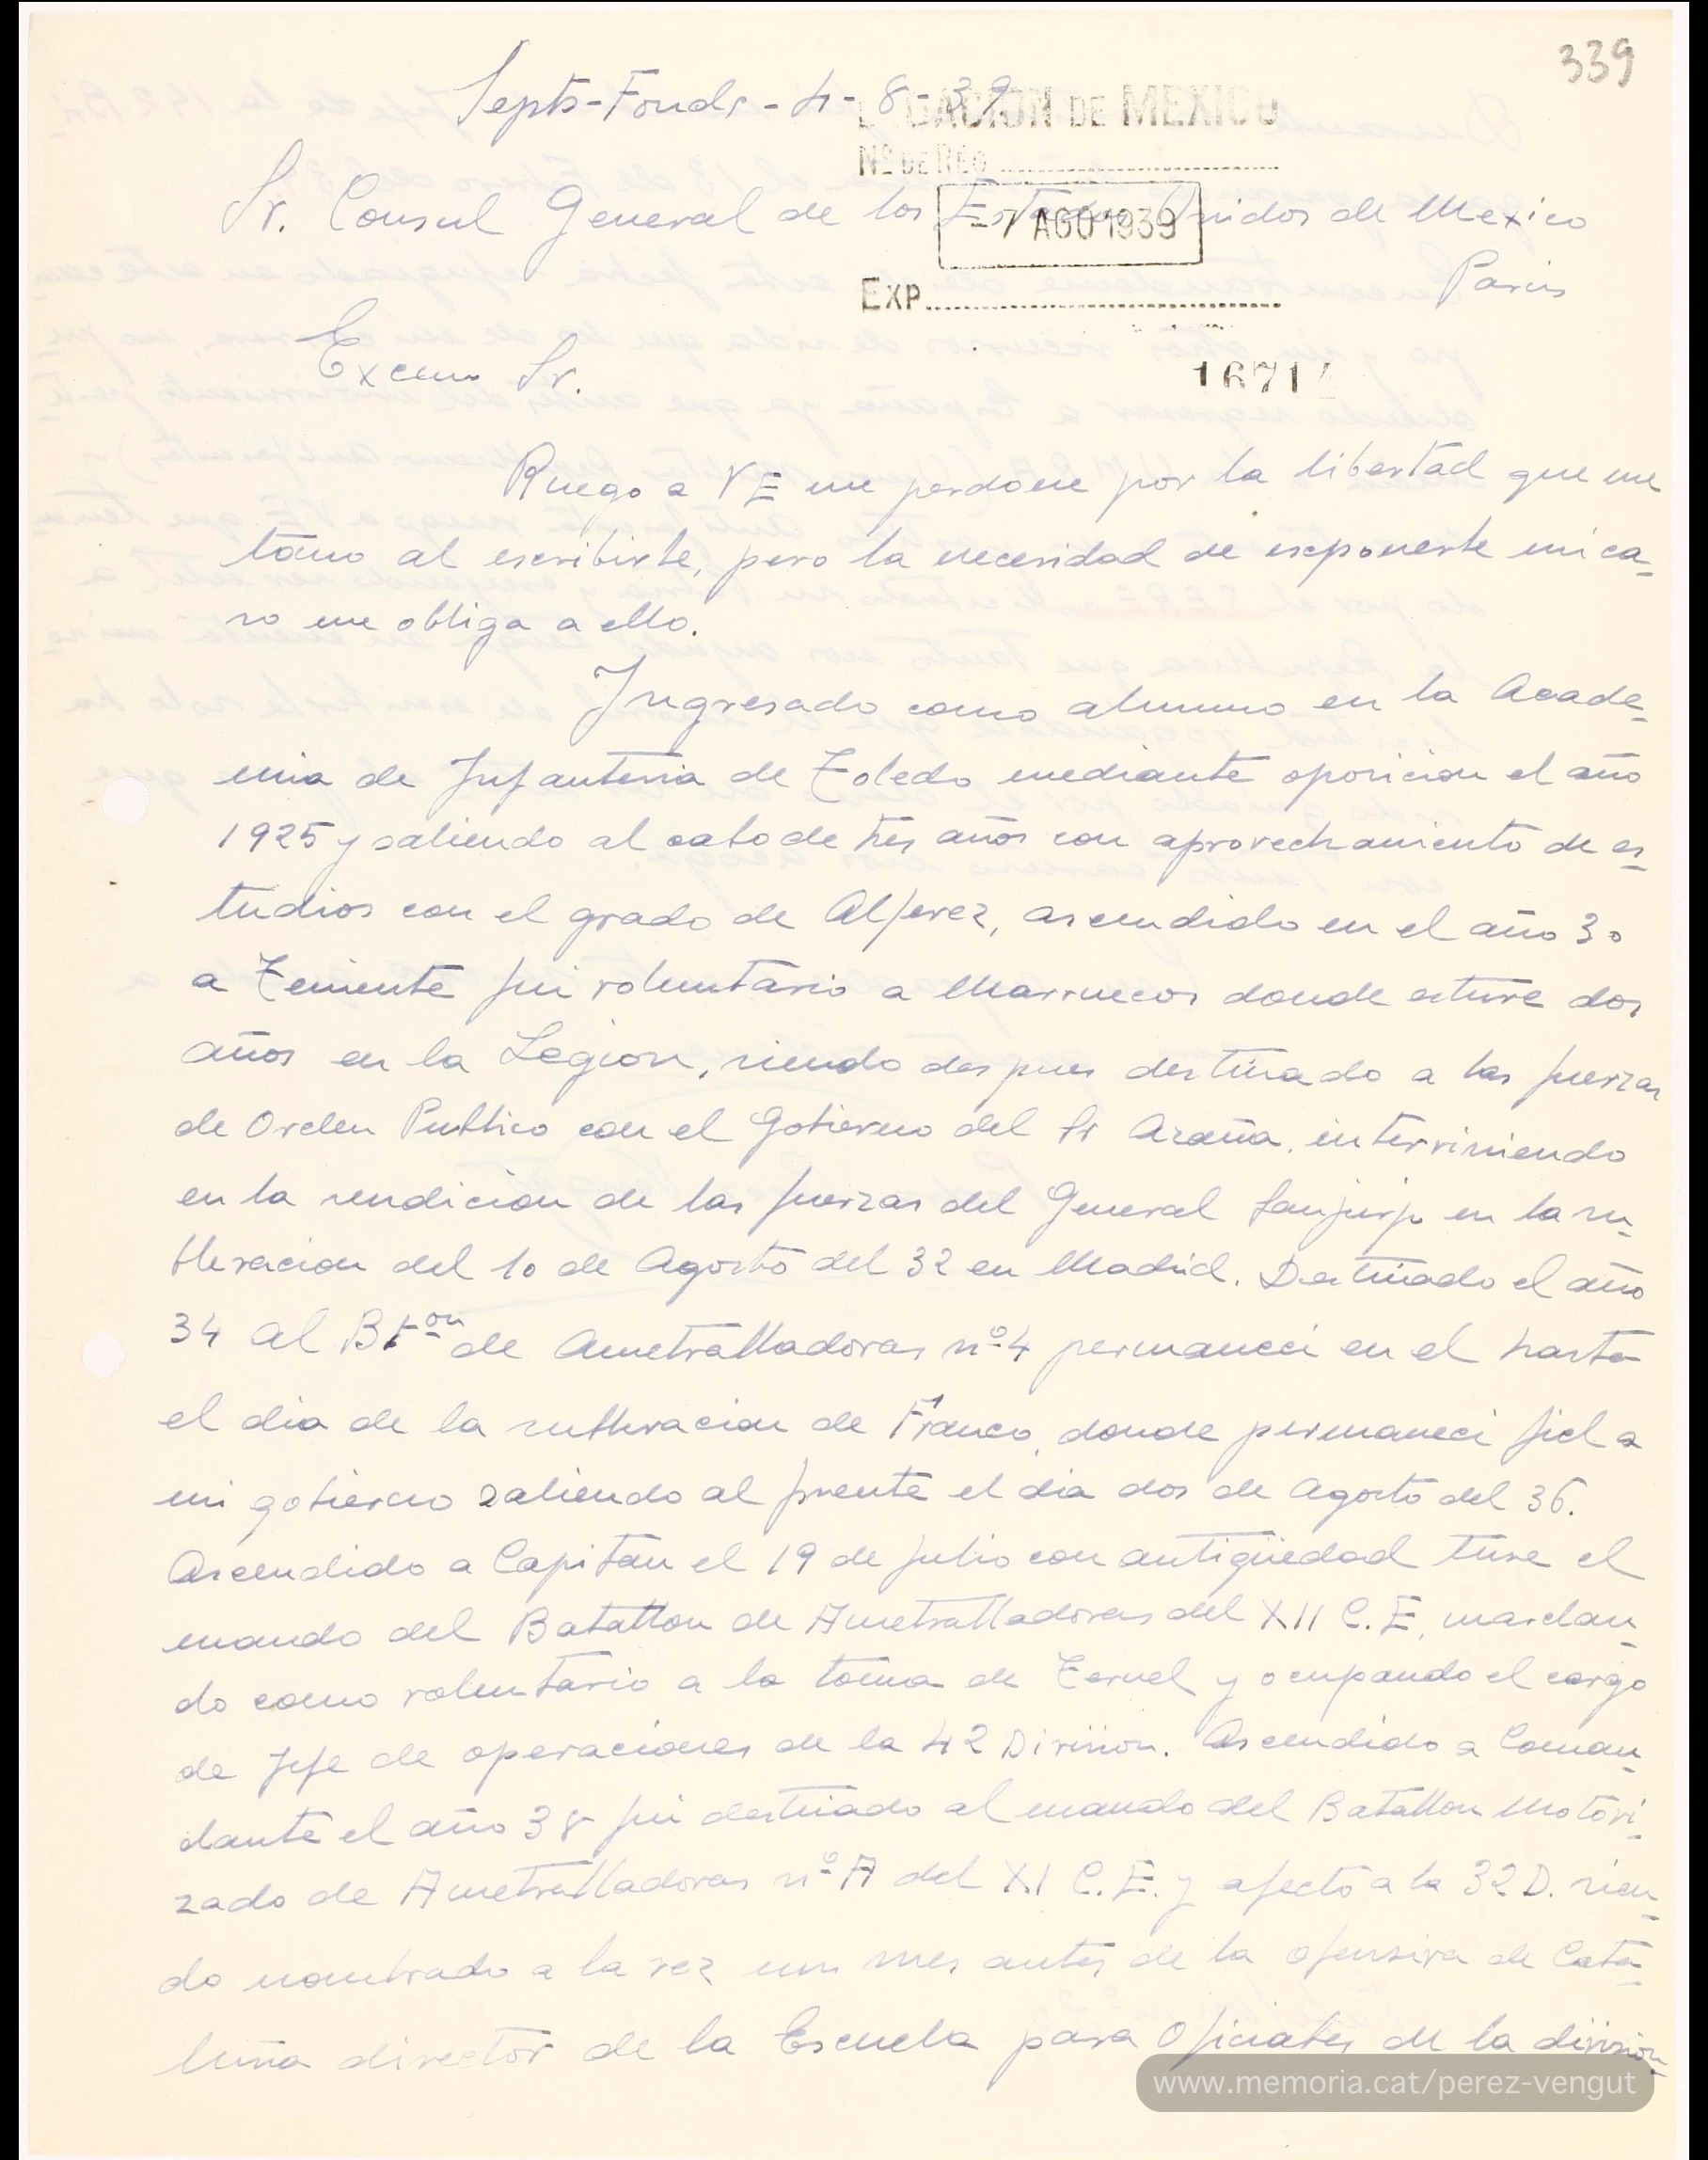 339
Septs-Fonds - 4 - 8 - 39
LEGACION DE MEXICO
Nº DE REG
Sr. Consul General de los Estados Unidos de Mexico
- 7 AGO 1939
Paris
EXP.
Excmo Sr.
16714
Ruego a VE me perdone por la libertad que me
tomo al escribirle, pero la necesidad de esponerle mi ca-
so me obliga a ello.
Ingresado como alumno en la Acade-
mia de Infanteria de Toledo mediante oposicion el año
1925 y saliendo al cabo de tres años con aprovechamiento de es-
tudios con el grado de Alferez, ascendido en el año 30
a Teniente fui voluntario a Marruecos donde estuve dos
años en la Legion, siendo despues destinado a las fuerzas
de Orden Publico con el Gobierno del Sr Azaña, interviniendo
en la rendicion de las fuerzas del General Sanjurjo en la su-
blevacion del 10 de Agosto del 32 en Madrid. Destinado el año
34 al Bton de Ametralladoras nº 4 permaneci en el hasta
el dia de la sublevacion de Franco, donde permaneci fiel a
mi gobierno saliendo al frente el dia dos de Agosto del 36.
Ascendido a Capitan el 19 de Julio con antigüedad tuve el
mando del Batallon de Ametralladoras del XII C.E, marchan-
do como voluntario a la toma de Teruel y ocupando el cargo
de Jefe de operaciones de la 42 Division. Ascendido a Coman-
dante el año 38 fui destinado al mando del Batallon Motori-
zado de Ametralladoras nº A del XI C.E. y afecto a la 32 D. sien-
do nombrado a la vez un mes antes de la ofensiva de Cata-
luña director de la Escuela para Oficiales de la division
www.memoria.cat/perez-vengut